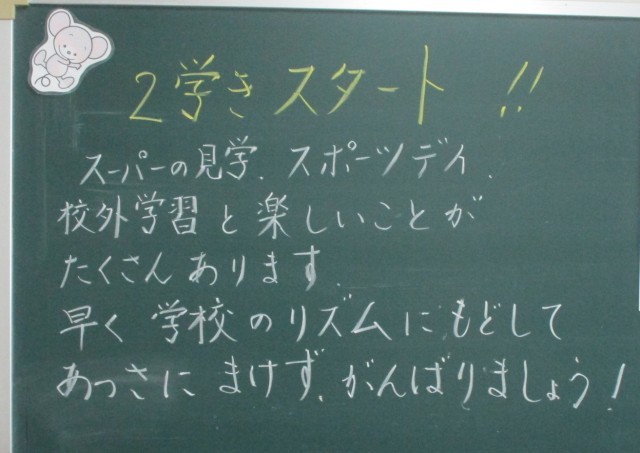 2学き スタート !!
スーパーの見学、スポーツデイ、
校外学習と楽しいことが
たくさんあります。
早く 学校のリズムにもどして
あつさに まけず、がんばりましょう!